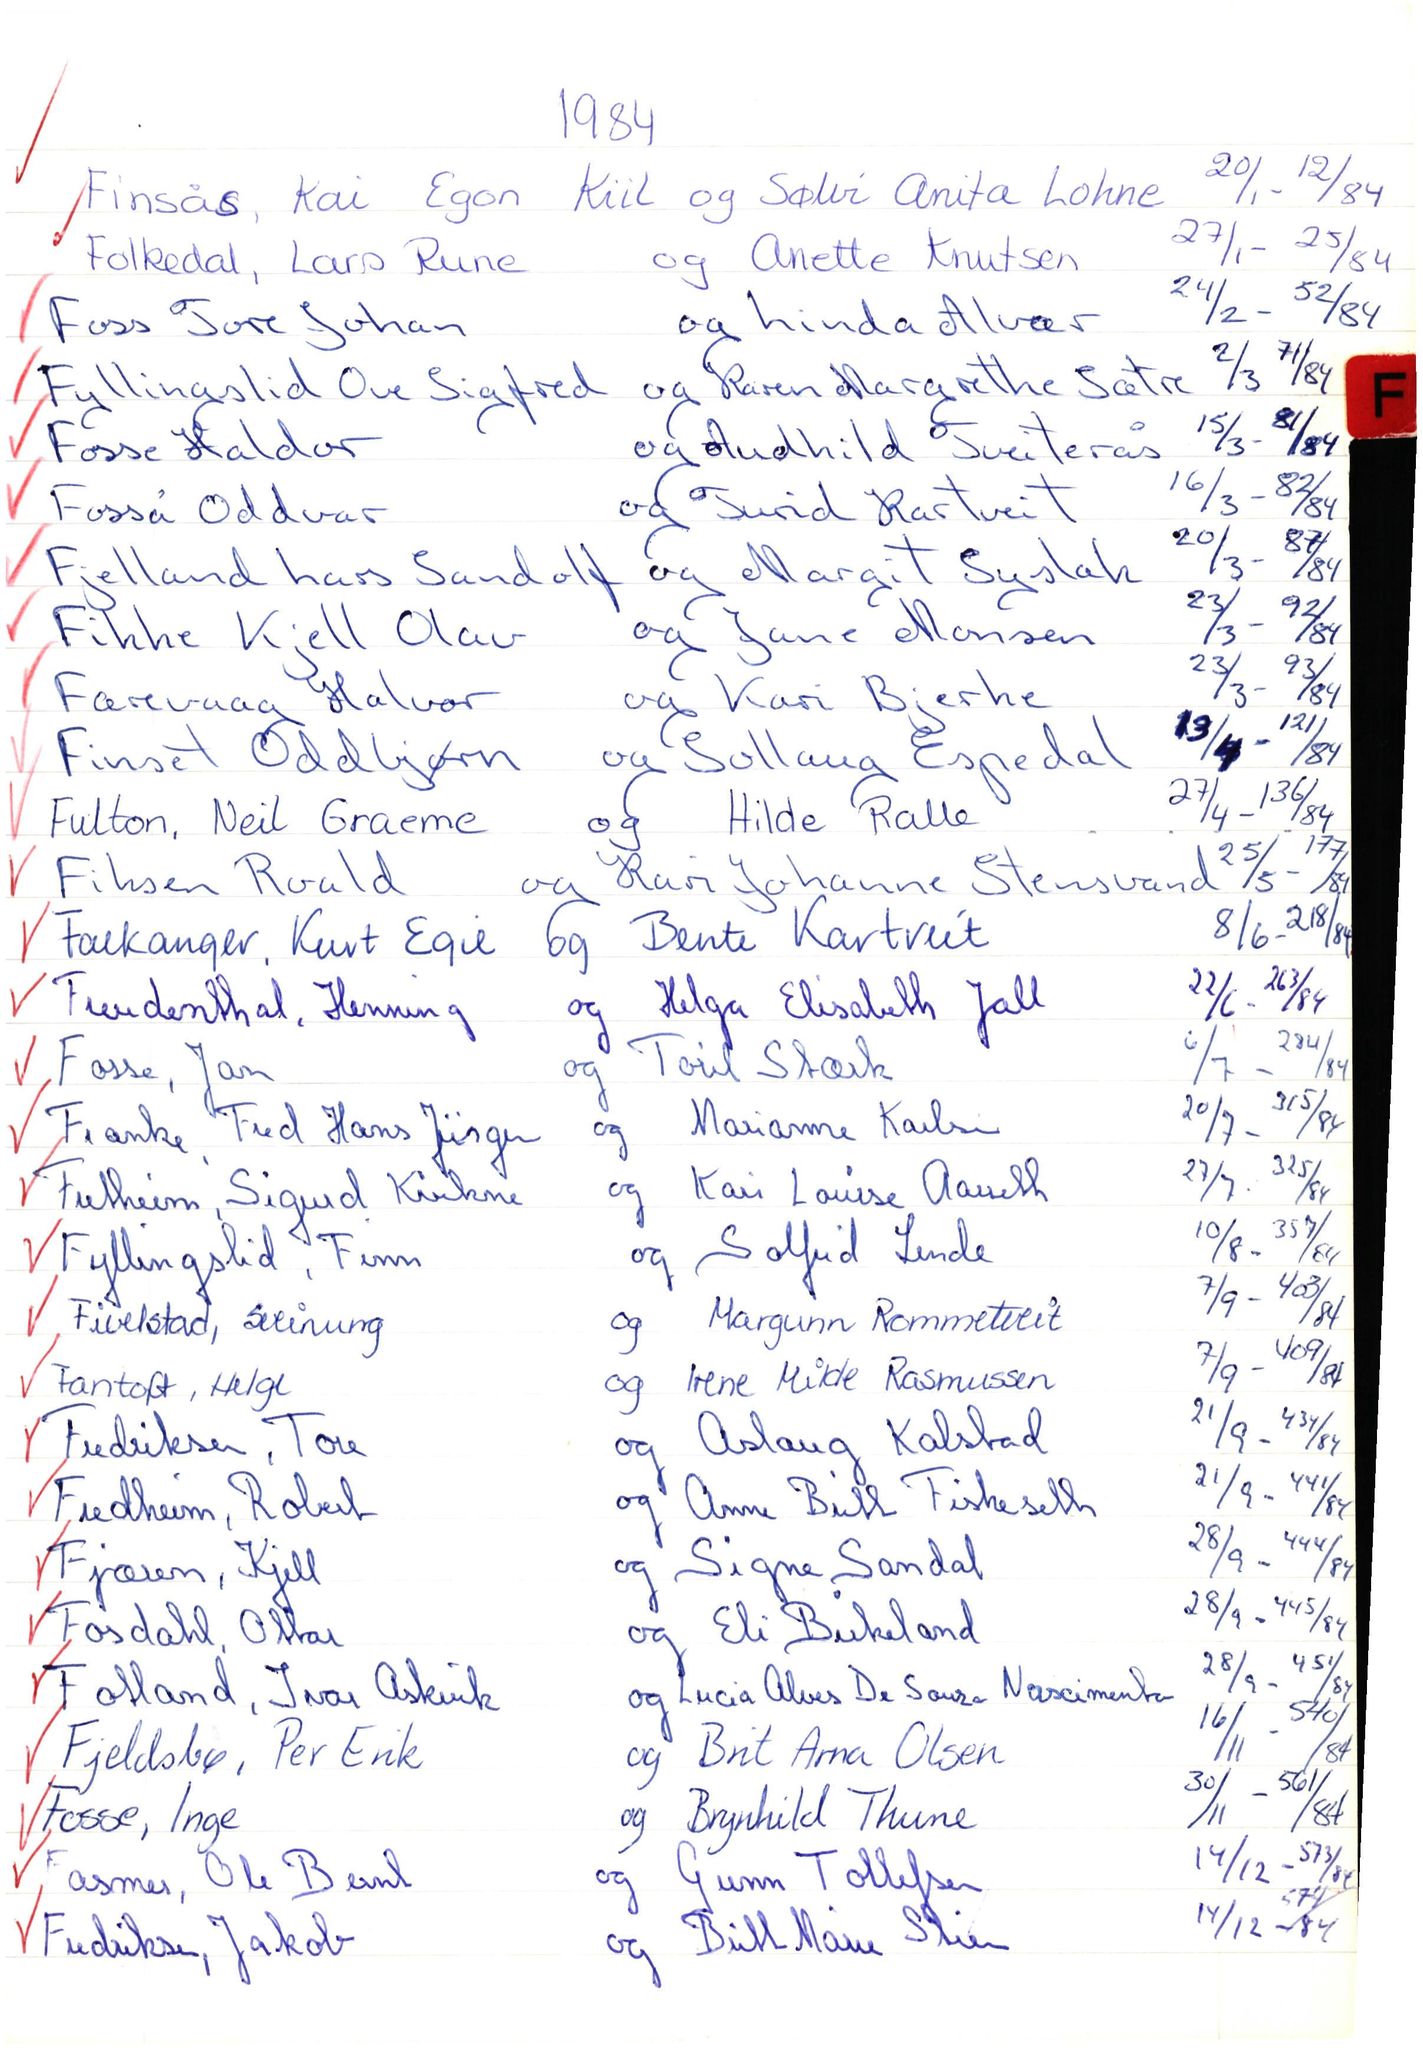 1984
Finsås, Kai Egon Kiil og Sølvi Anita Lohne 20/1 - 12/84
Folkedal, Lars Rune og Anette Knutsen 27/1 - 25/84
Foss Tore Johan og Linda Alvær 24/2 - 52/84
Fyllingslid Ove Sigfred og Karen Margrethe Sætre 2/3 71/84
F
Fosse Haldor og Audhild Tveiterås 15/3 - 81/84
Fosså Oddvar og Turid Kartveit 16/3 - 82/84
Fjelland Lars Sandolf og Margit Syslak 20/3 - 87/84
Fikke Kjell Olav og Jane Monsen 23/3 - 92/84
Færevaag Halvor og Kari Bjerke 23/3 - 93/84
Finset Oddbjørn og Sollaug Espedal 13/4 - 121/84
Fulton, Neil Graeme og Hilde Kalle 27/4 - 136/84
Fiksen Roald og Kari Johanne Stensvand 25/5 - 177/84
Faekanger, Kurt Egil og Bente Kartveit 8/6 - 218/84
Freudenthal, Henning og Helga Elisabeth Jall 22/6 - 263/84
Fosse, Jan og Toril Stærk 6/7 - 284/84
Franke, Fred Hans Jürgen og Marianne Karlsen 20/7 - 315/84
Fretheim, Sigurd Kvikne og Kari Louise Aarseth 27/7. 325/84
Fyllingslid, Finn og Solfrid Lende 10/8 - 357/84
Fivelstad, Steinung og Margunn Rommetveit 7/9 - 403/84
Fantoft, Helge og Irene Milde Rasmussen 7/9 - 409/84
Fredriksen, Tore og Aslaug Kalstad 21/9 - 434/84
Fredheim, Robert og Anne Britt Fiskeseth 21/9 - 441/84
Fjæren, Kjell og Signe Sandal 28/9 - 444/84
Fosdahl, Ottar og Eli Birkeland 28/9 - 445/84
Fotland, Ivar Askvik og Lucia Alves De Souza Nascimento 28/9 - 451/84
Fjeldsbø, Per Erik og Brit Arna Olsen 16/11 - 540/84
Fosse, Inge og Brynhild Thune 30/11 - 561/84
Fasmer, Ole Bernt og Gunn Tollefsen 14/12 - 573/84
Fredriksen, Jakob og Britt Marie Stien 14/12 - 574/84